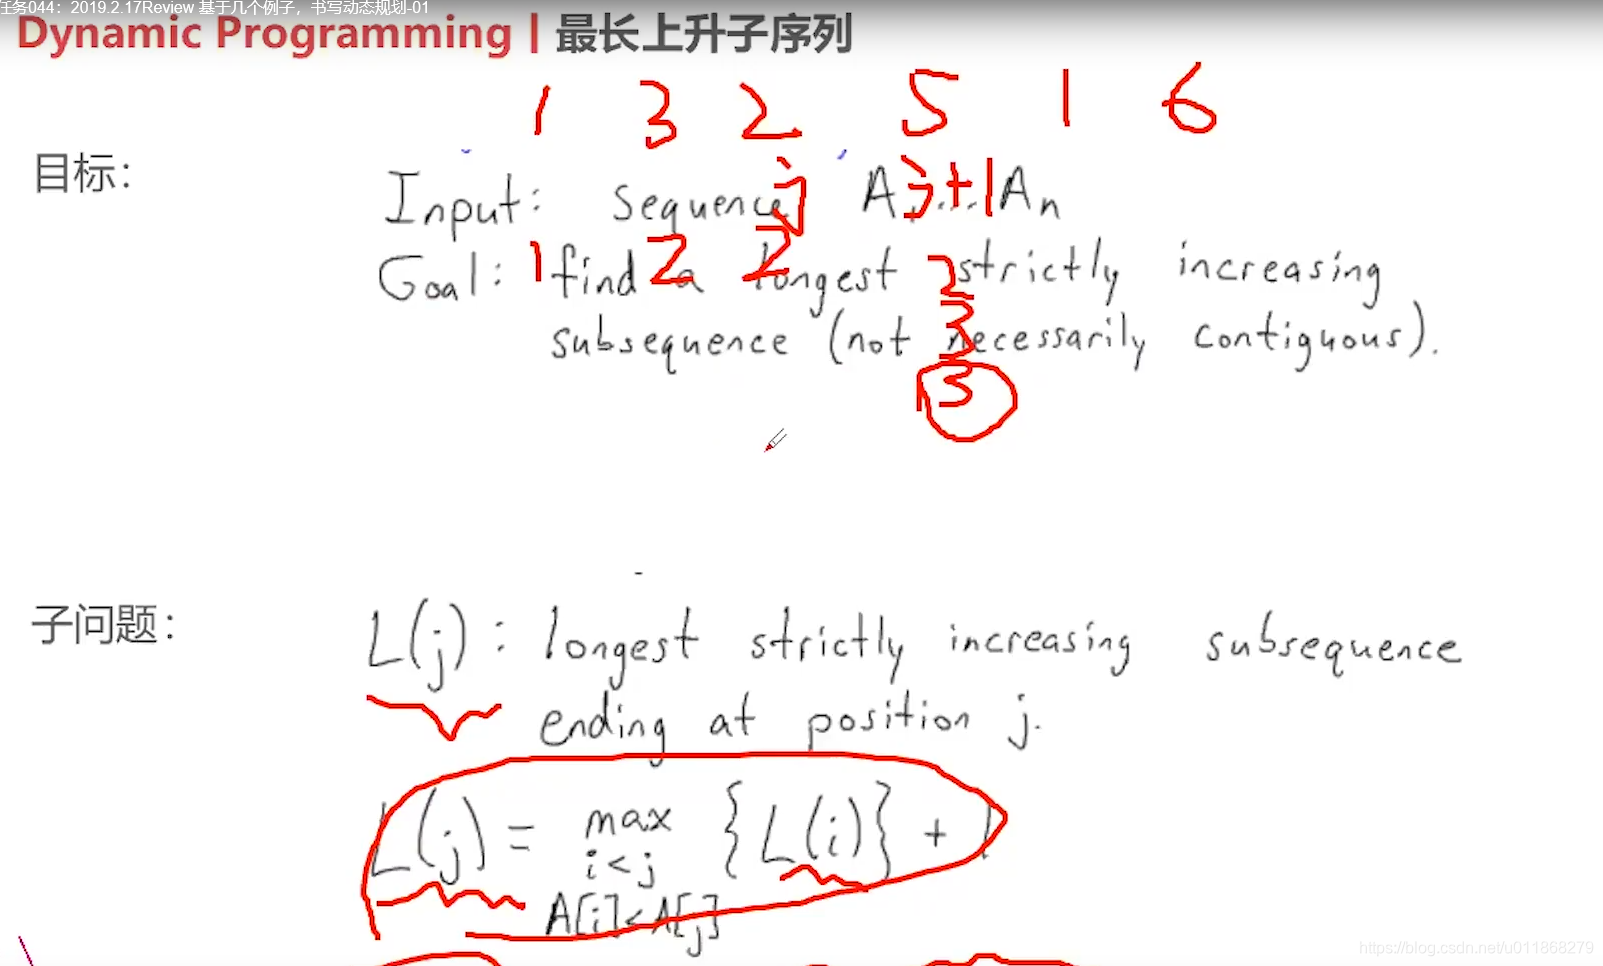 任务044：2019.2.17Review 基于几个例子，书写动态规划-01
Dynamic Programming | 最长上升子序列
1 3 2 5 1 6
目标：
Input: Sequence A An
j j+1
Goal: find a longest strictly increasing
1 2 2 2
subsequence (not necessarily contiguous).
3
3
子问题：
L(j): longest strictly increasing subsequence
ending at position j.
L(j) = max {L(i)} + 1
i<j
A[i]<A[j]
https://blog.csdn.net/u011868279